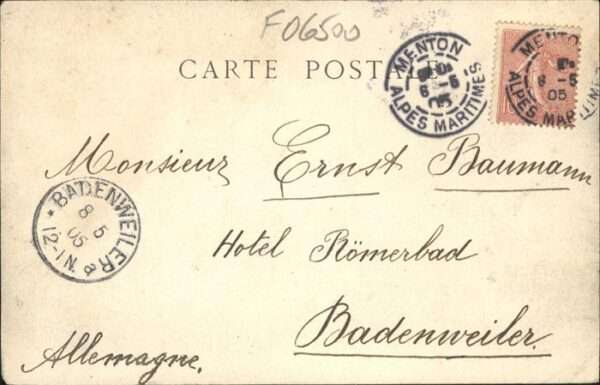 F06500
CARTE POSTALE
MENTON
6 -5
05
ALPES MARITIMES
MENTON
6 -5
05
ALPES MARITIMES
Monsieur Ernst Baumann
Hotel Römerbad
Badenweiler.
Allemagne.
* BADENWEILER *
8 5
05
12-1N.